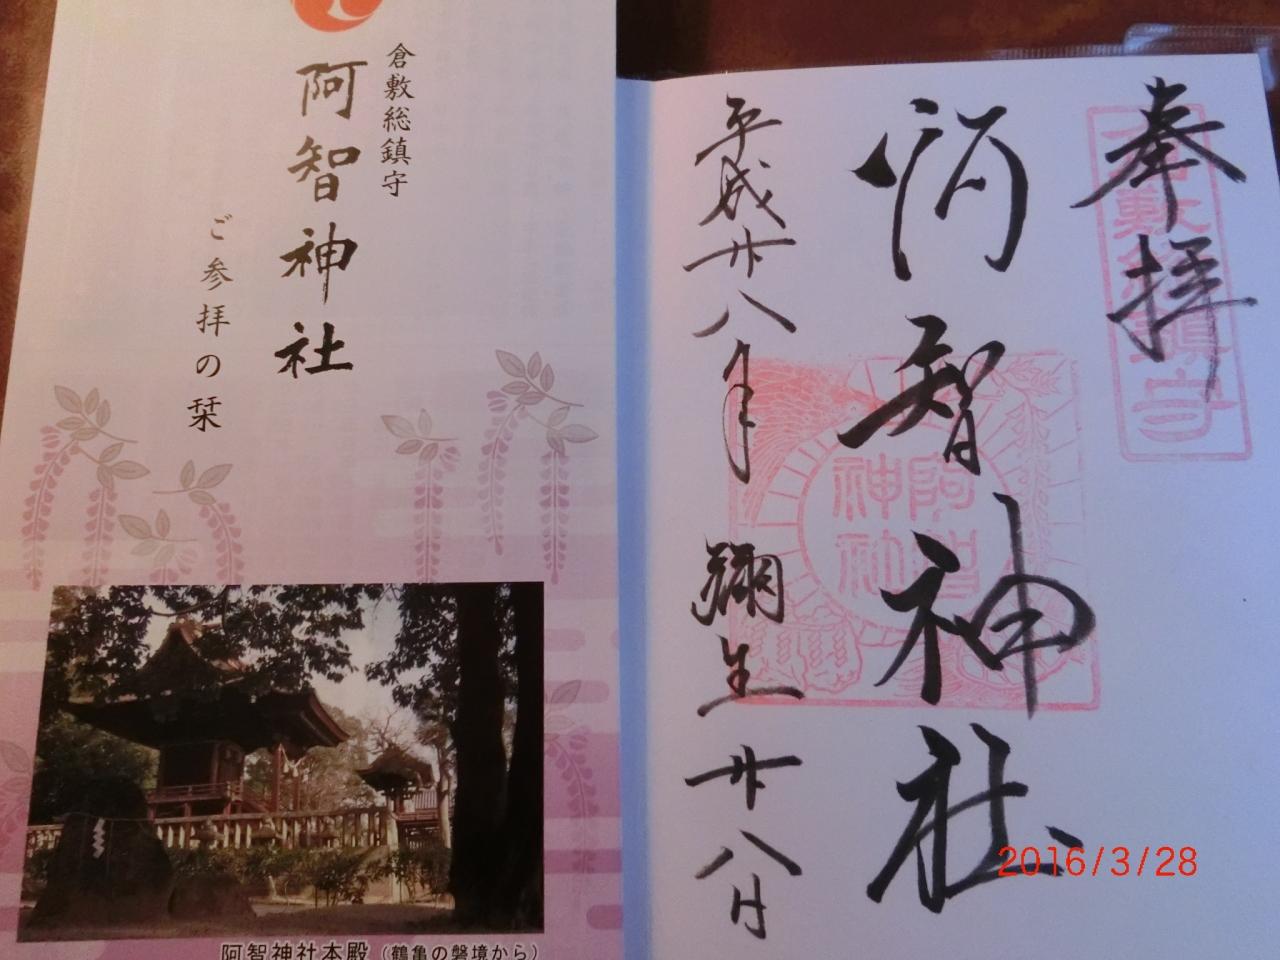 倉敷総鎮守
阿智神社
ご参拝の栞
阿智神社本殿（鶴亀の磐境から）
奉拝
倉敷総鎮守
阿智神社
阿智
神社
平成廿八年 彌生 廿八日
2016/3/28